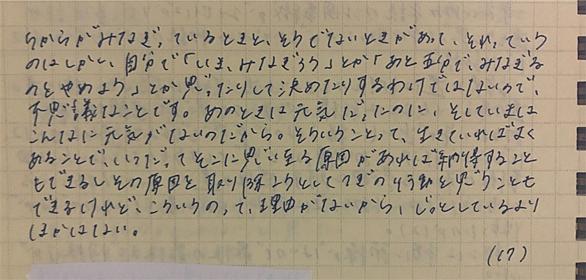 ちからがみなぎっているときと、そうでないときがあって、それっていうの
はしかし、自分で「いま、みなぎろう」とか「あと五分で、みなぎる
のをやめよう」とか思ったりして決めたりするわけではないので、
不思議なことです。あのときは元気だったのに、そしていまは
こんなに元気がないのだから。そういうことって、生きていればよく
あることで、いつだってそこに思い至る原因があれば納得すること
もできるしその原因を取り除こうとしてつぎの行動を思うことも
できるけれど、こういうのって、理由がないから、じっとしているより
ほかはない。
(17)